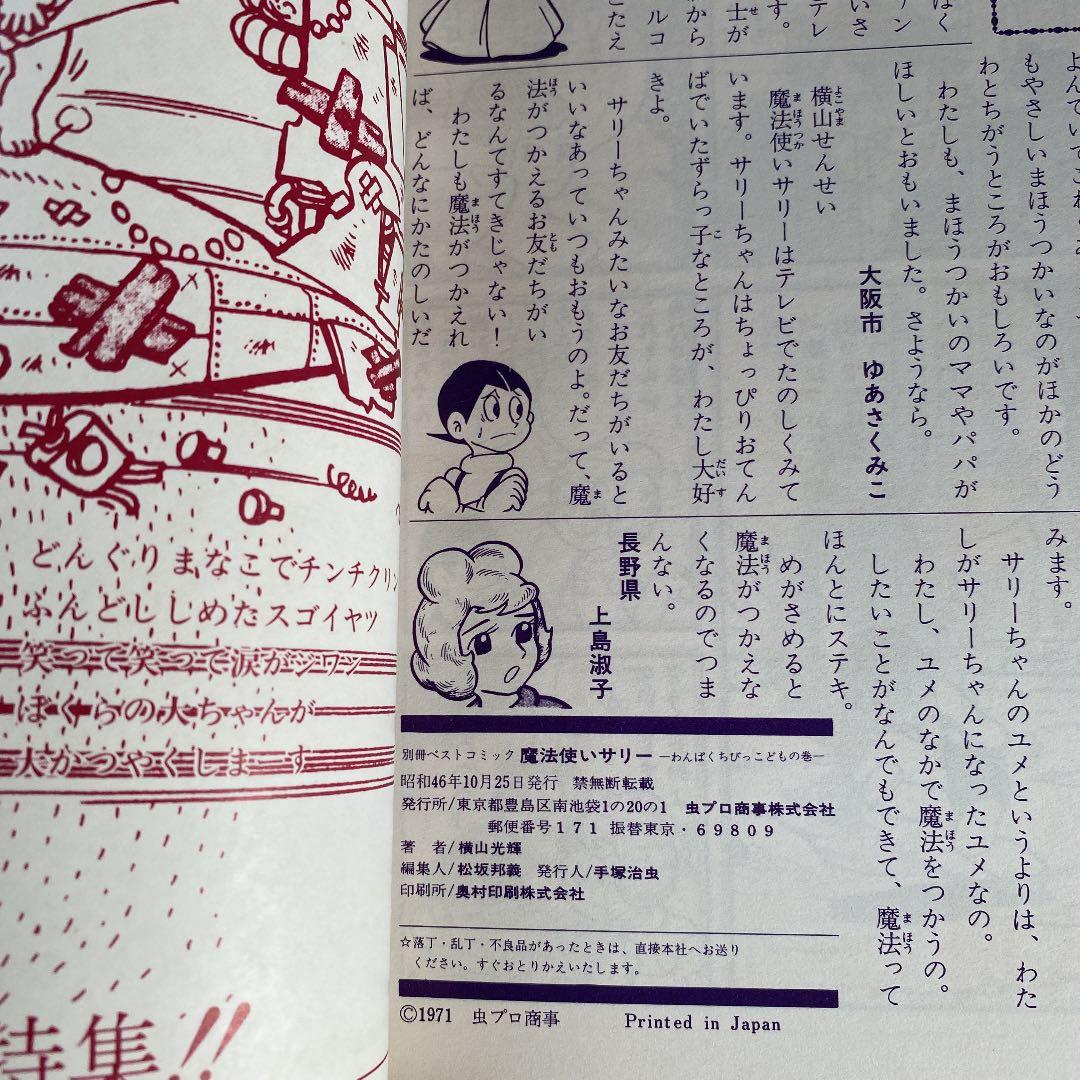 ほく
テン
いさ
テレ
す。
士が
から
ルコ
こたえ
もやさしいまほうつかいなのがほかのどう
わとちがうところがおもしろいです。
わたしも、まほうつかいのママやパパが
ほしいとおもいました。さようなら。
大阪市 ゆあさくみこ
横山せんせい
魔法使いサリーはテレビでたのしくみて
います。サリーちゃんはちょっぴりおてん
ばでいたずらっ子なところが、わたし大好
きよ。
サリーちゃんみたいなお友だちがいると
いいなあっていつもおもうのよ。だって、魔
法がつかえるお友だちがい
るなんてすてきじゃない!
わたしも魔法がつかえれ
ば、どんなにかたのしいだ
みます。
サリーちゃんのユメというよりは、わた
しがサリーちゃんになったユメなの。
わたし、ユメのなかで魔法をつかうの。
したいことがなんでもできて、魔法って
ほんとにステキ。
めがさめると
魔法がつかえな
くなるのでつま
んない。
長野県 上島淑子
別冊ベストコミック 魔法使いサリー―わんぱくちびっこどもの巻―
昭和46年10月25日発行 禁無断転載
発行所/東京都豊島区南池袋1の20の1 虫プロ商事株式会社
郵便番号171 振替東京・69809
著 者/横山光輝
編集人/松坂邦義 発行人/手塚治虫
印刷所/奥村印刷株式会社
☆落丁・乱丁・不良品があったときは、直接本社へお送り
ください。すぐおとりかえいたします。
©1971 虫プロ商事 Printed in Japan
どんぐりまなこでチンチクリン
ふんどししめたスゴイヤツ
笑って笑って涙がジワン
ぼくらの大ちゃんが
大かつやくしまーす
特集!!